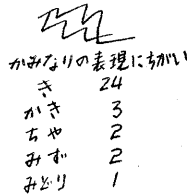 かみなりの表現にちがい
き 24
かき 3
ちゃ 2
みず 2
みどり 1